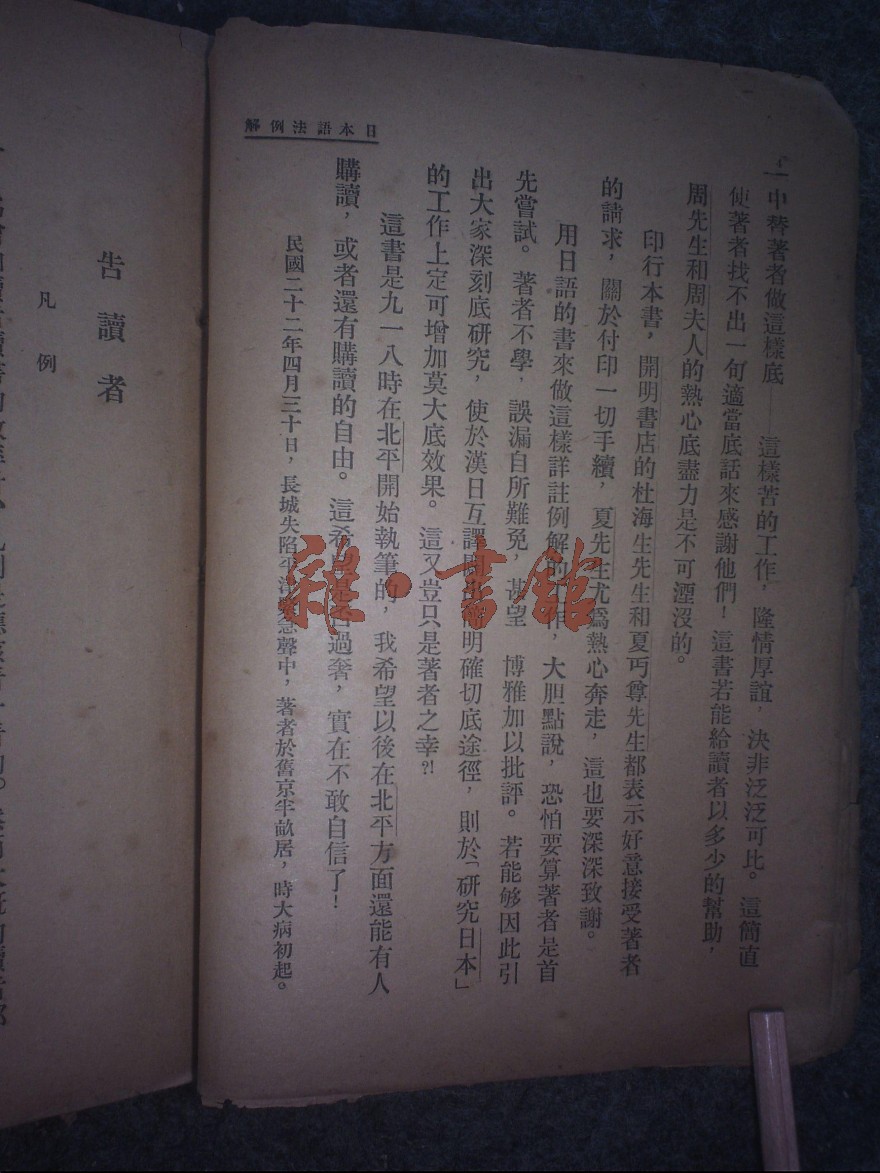 日本語法例解
中替著者做這樣底——這樣苦的工作，隆情厚誼，決非泛泛可比。這簡直
使著者找不出一句適當底話來感謝他們！這書若能給讀者以多少的幫助，
周先生和周夫人的熱心底盡力是不可湮沒的。
印行本書，開明書店的杜海生先生和夏丏尊先生都表示好意接受著者
的請求，關於付印一切手續，夏先生尤爲熱心奔走，這也要深深致謝。
用日語的書來做這樣詳註例解的作，大胆點說，恐怕要算著者是首
先嘗試。著者不學，誤漏自所難免，甚望　博雅加以批評。若能够因此引
出大家深刻底研究，使於漢日互譯明確切底途徑，則於「研究日本」
的工作上定可增加莫大底效果。這又豈只是著者之幸?!
這書是九一八時在北平開始執筆的，我希望以後在北平方面還能有人
購讀，或者還有購讀的自由。這希是否過奢，實在不敢自信了！
民國二十二年四月三十日，長城失陷平急聲中，著者於舊京半畝居，時大病初起。
告讀者
凡例
雜·書館